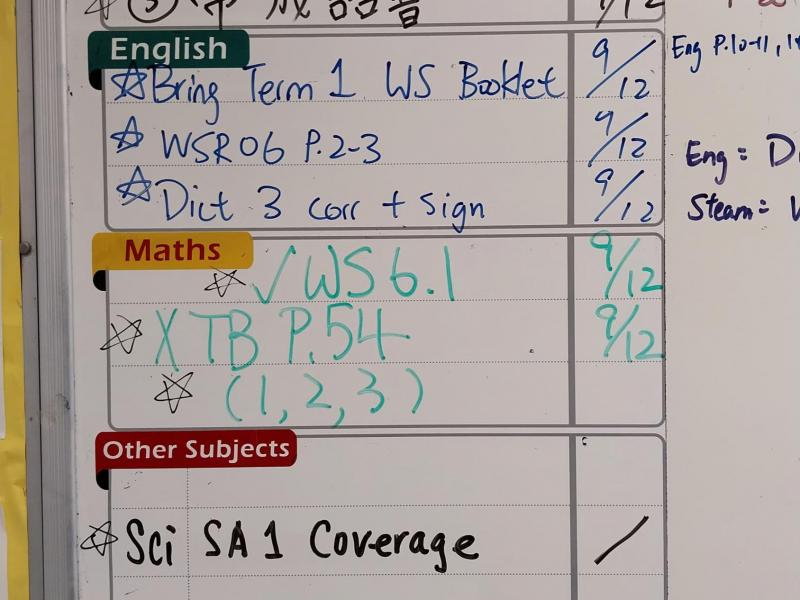 English
☆ Bring Term 1 WS Booklet 9/12
☆ WSR06 P.2-3 9/12
☆ Dict 3 corr + sign 9/12
Maths
☆ √ WS 6.1 9/12
☆ X TB P.54 9/12
☆ (1, 2, 3)
Other Subjects
☆ Sci SA 1 Coverage /
Eng P.10-11,
Eng =
Steam =